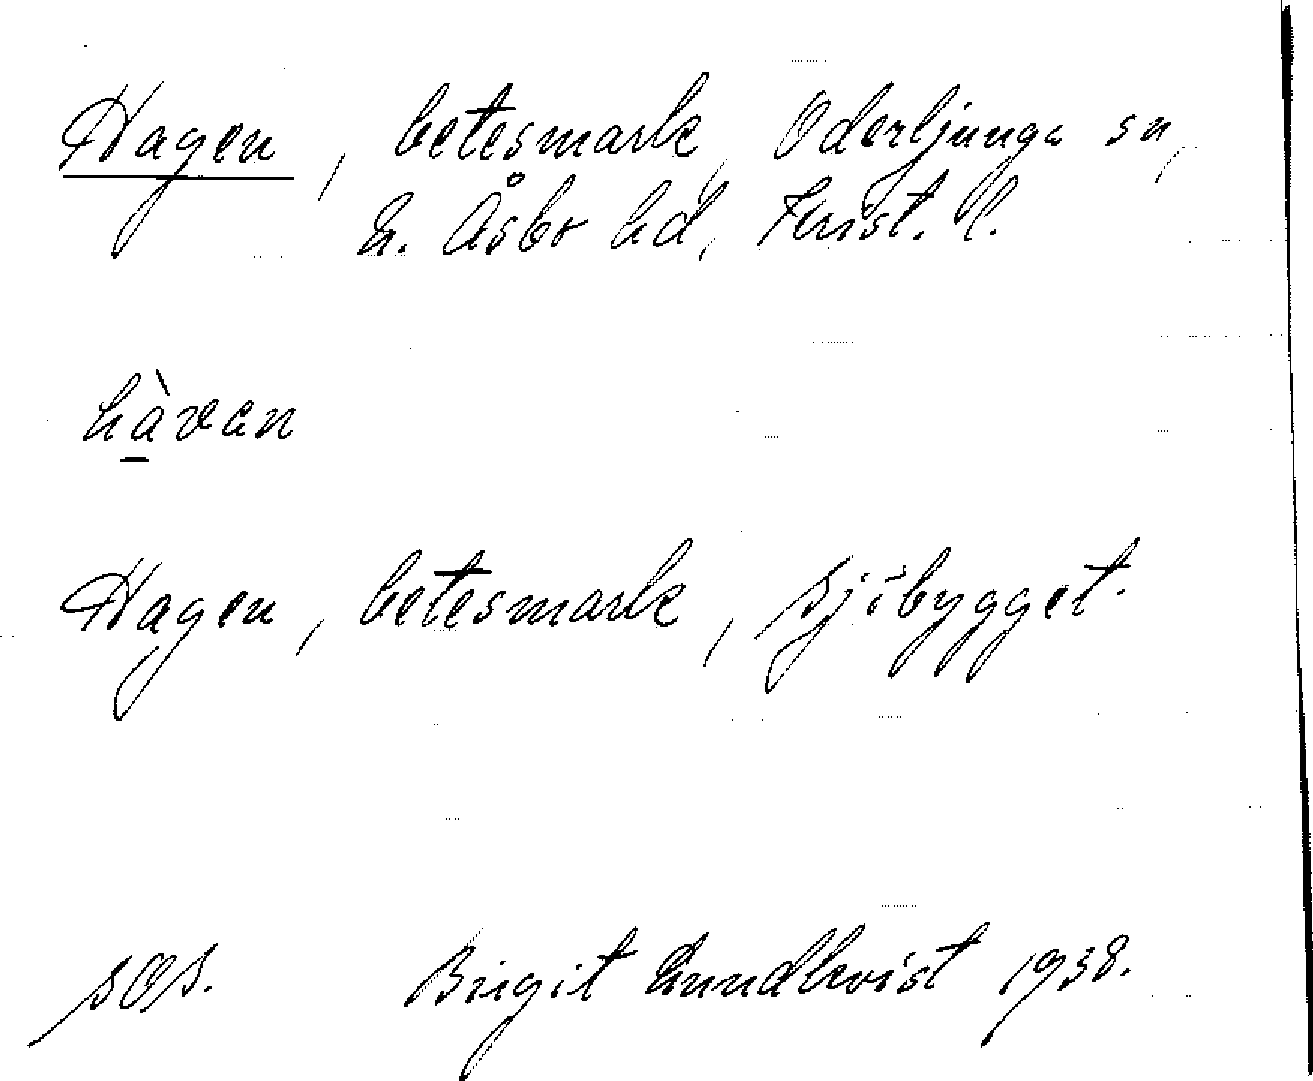 Hagen, betesmark, Oderljunga sn,
N. Åsbo hd, Krist. l.
hàvan
Hagen, betesmark, Sjöbygget.
Birgit Lundkvist 1938.